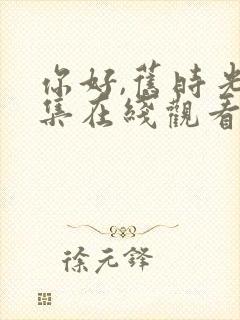 你好,舊時光
集在綫觀看
徐元鋒